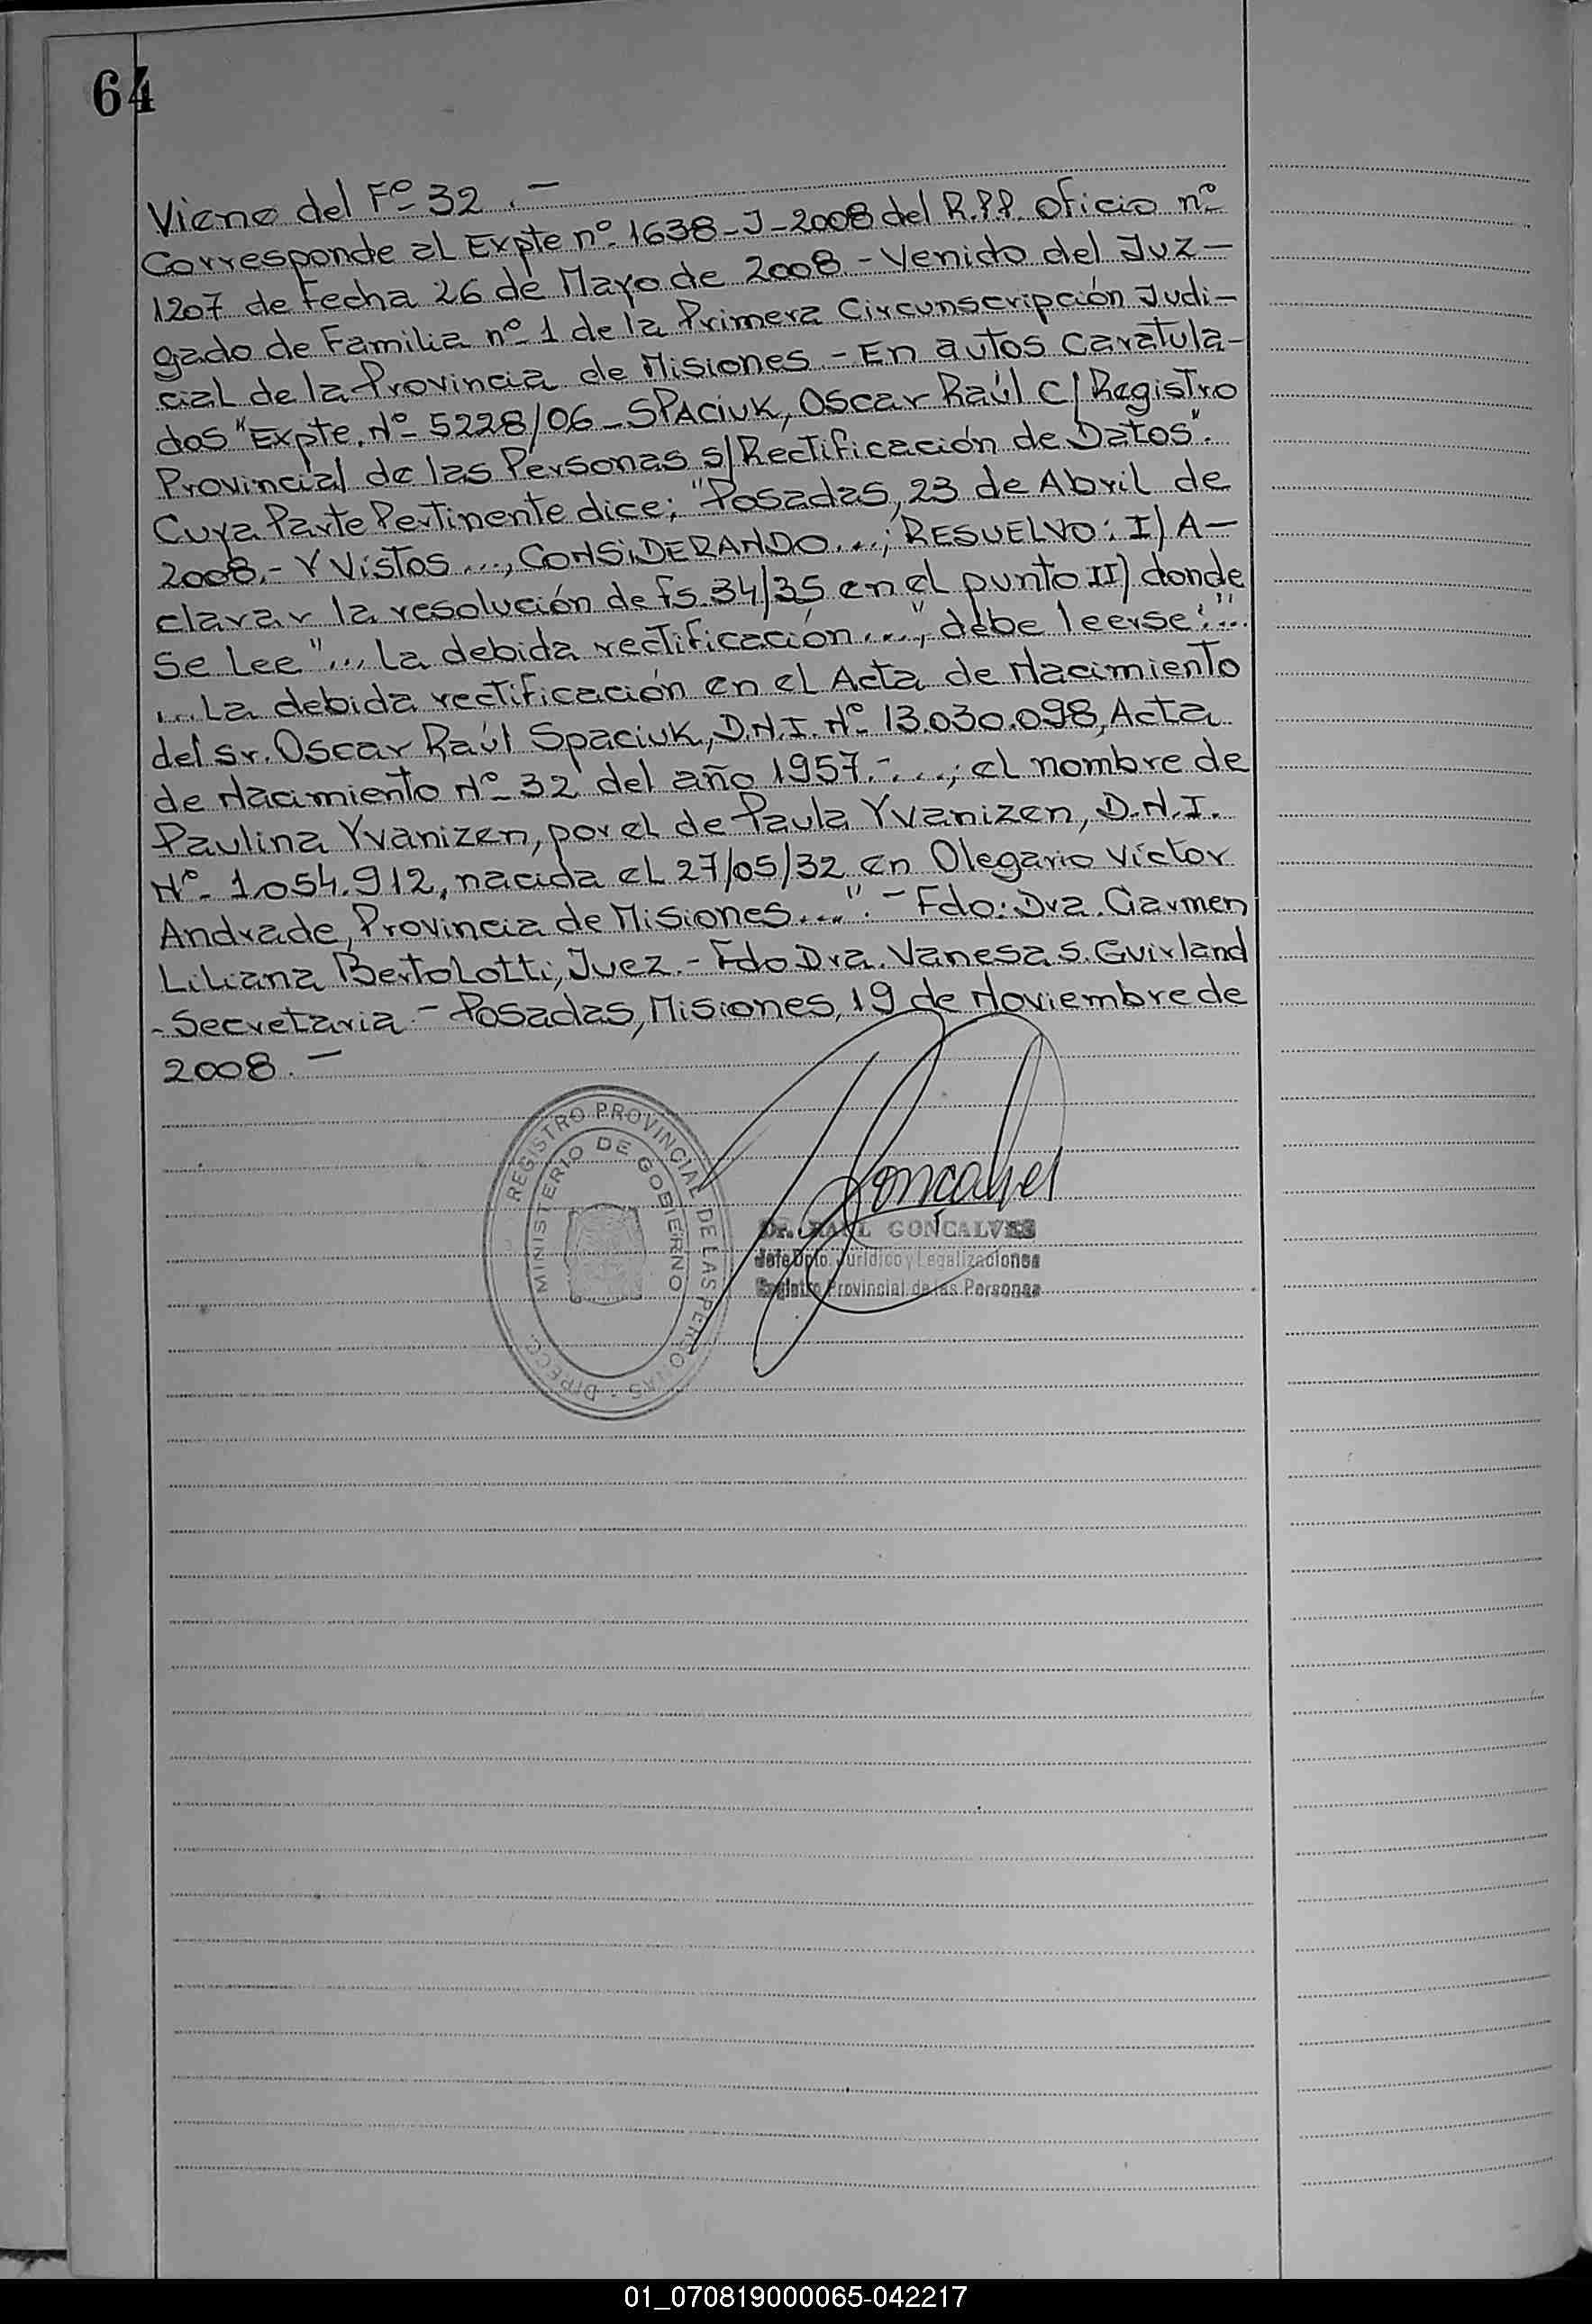 64
Viene del Fº 32.-
Corresponde al Expte nº 1638-J-2008 del R.P.P. oficio nº
1207 de Fecha 26 de Mayo de 2008 - Venido del Juz-
gado de Familia nº 1 de la Primera Circunscripción Judi-
cial de la Provincia de Misiones.- En autos caratula-
dos "Expte. Nº 5228/06 - SPACiUK, Oscar Raúl C/ Registro
Provincial de las Personas s/ Rectificación de Datos".
Cuya Parte Pertinente dice; "Posadas, 23 de Abril de
2008.- Y ViSTOS ..., CONSiDERANDO...; RESUELVO: I) A-
clarar la resolución de fs. 34/35 en el punto II) donde
se lee "... La debida rectificación...", debe leerse: "...
... La debida rectificación en el Acta de Nacimiento
del sr. Oscar Raúl Spaciuk, D.N.I. Nº 13.030.098, Acta
de Nacimiento Nº 32 del año 1957.-...; el nombre de
Paulina Yvanizen, por el de Paula Yvanizen, D.N.I.
Nº 1.054.912, nacida el 27/05/32 en Olegario Víctor
Andrade, Provincia de Misiones...". - Fdo: Dra. Carmen
Liliana Bertolotti, Juez.- Fdo Dra. Vanesa S. Guirland
- Secretaria - Posadas, Misiones, 19 de Noviembre de
2008.-
REGISTRO PROVINCIAL DE LAS PERSONAS
MINISTERIO DE GOBIERNO
Gonçalves
Dr. RAUL GONÇALVES
Jefe Dpto. Jurídico y Legalizaciones
Registro Provincial de las Personas
01_070819000065-042217